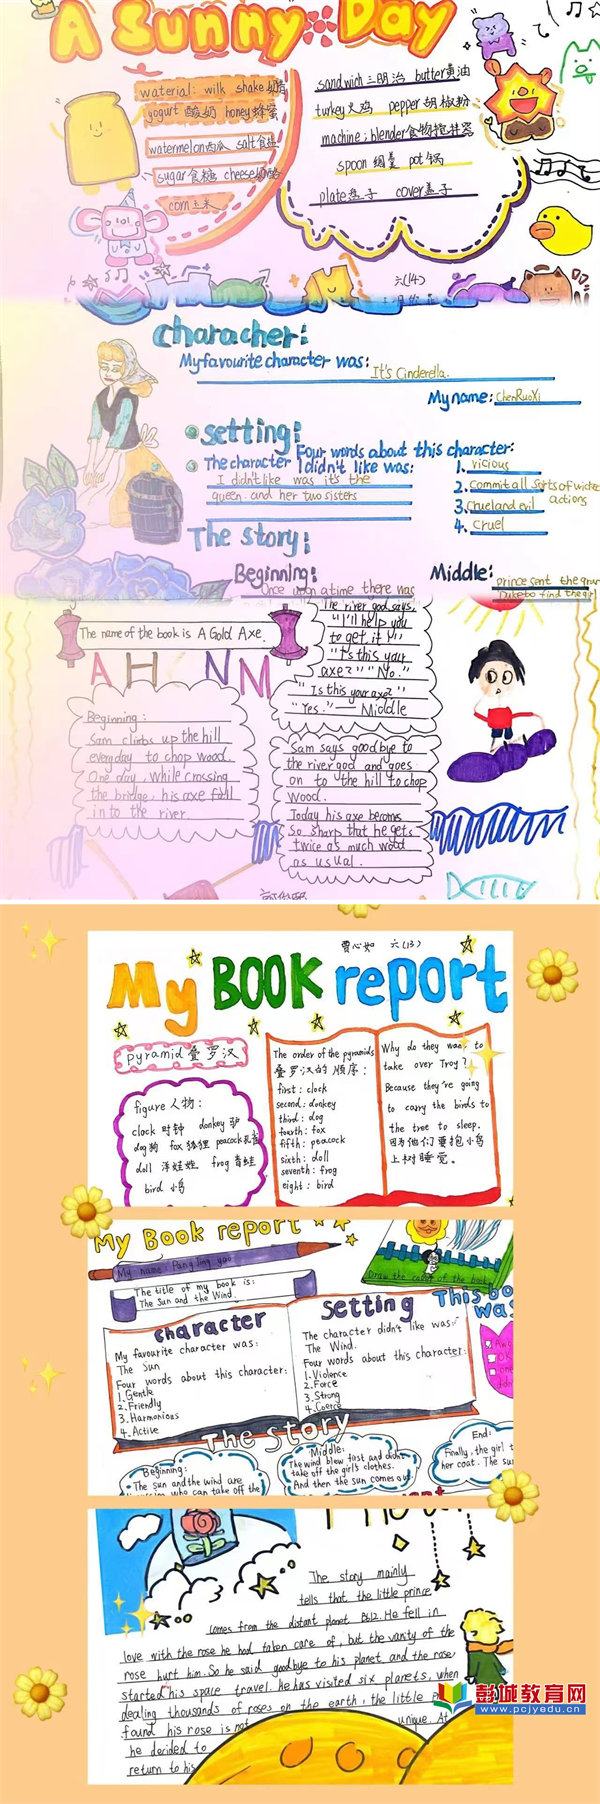 A Sunny Day
waterial: wilk shake奶昔
yogurt 酸奶 honey蜂蜜
watermelon西瓜 salt食盐
sugar食糖 cheese奶酪
corn玉米
sandwich三明治 butter黄油
turkey火鸡 pepper胡椒粉
machine; blender食物搅拌器
spoon 锅
plate盘子 cover盖子
六(14)
characher:
My favourite character was: It's Cinderella.
My name: ChenRuoXi
setting:
Four words about this character:
The character I didn't like was:
I didn't like was it's the
queen. and her two sisters
1. vicious
2. Commit all sorts of wicked
actions
3. Crueland evil
4. cruel
The story:
Beginning: Once upon a time there was
Middle: prince sent the gran
Duke to find the girl
The name of the book is A Gold Axe.
AH NM
Beginning:
Sam climbs up the hill
everyday to chop wood.
One day, while crossing
the bridge, his axe fall
in to the river
The river god says,
"I'll help you
to get it!"
"Is this your
axe?" "No."
"Is this your axe?"
"Yes." — Middle
Sam says goodbye to
the river god and goes
on to the hill to chop
wood.
Today his axe becomes
so sharp that he gets
twice as much wood
as usual.
贾心如 六(13)
My BOOK report
pyramid叠罗汉
figure人物:
clock时钟 donkey驴
dog狗 fox狐狸 peacock孔雀
doll 洋娃娃 frog青蛙
bird 小鸟
The order of the pyramids
叠罗汉的顺序:
first: clock
second: donkey
third: dog
fourth: fox
fifth: peacock
sixth: doll
seventh: frog
eight: bird
Why do they want to
take over Troy?
Because they're going
to carry the birds to
the tree to sleep.
因为他们要抱小鸟
上树睡觉。
My Book report
My name: Pang Jing yao
The title of my book is:
The Sun and the Wind.
Draw the cover of the book
This bo
was
character
My favourite character was:
The Sun
Four words about this character:
1. Gentle
2. Friendly
3. Harmonious
4. Active
Setting
The character didn't like was:
The Wind.
Four words about this character:
1. Violence
2. Force
3. Strong
4. Coerce
The Story
Beginning:
The sun and the wind are
who can take off the
Middle:
The wind blew fist and didn't
take off the girl's clothes.
And then the sun comes out
End:
Finally, the girl t
her coat. The sun
The story mainly
tells that the little prince
comes from the distant planet B612. He fell in
love with the rose he had taken care of, but the vanity of the
rose hurt him. So he said goodbye to his planet and the rose
started his space travel. he has visited six planets, when
dealing thousands of roses on the earth, the little P
found his rose is not unique. At
he decided to
return to his
彭城教育网
www.pcjyedu.cn